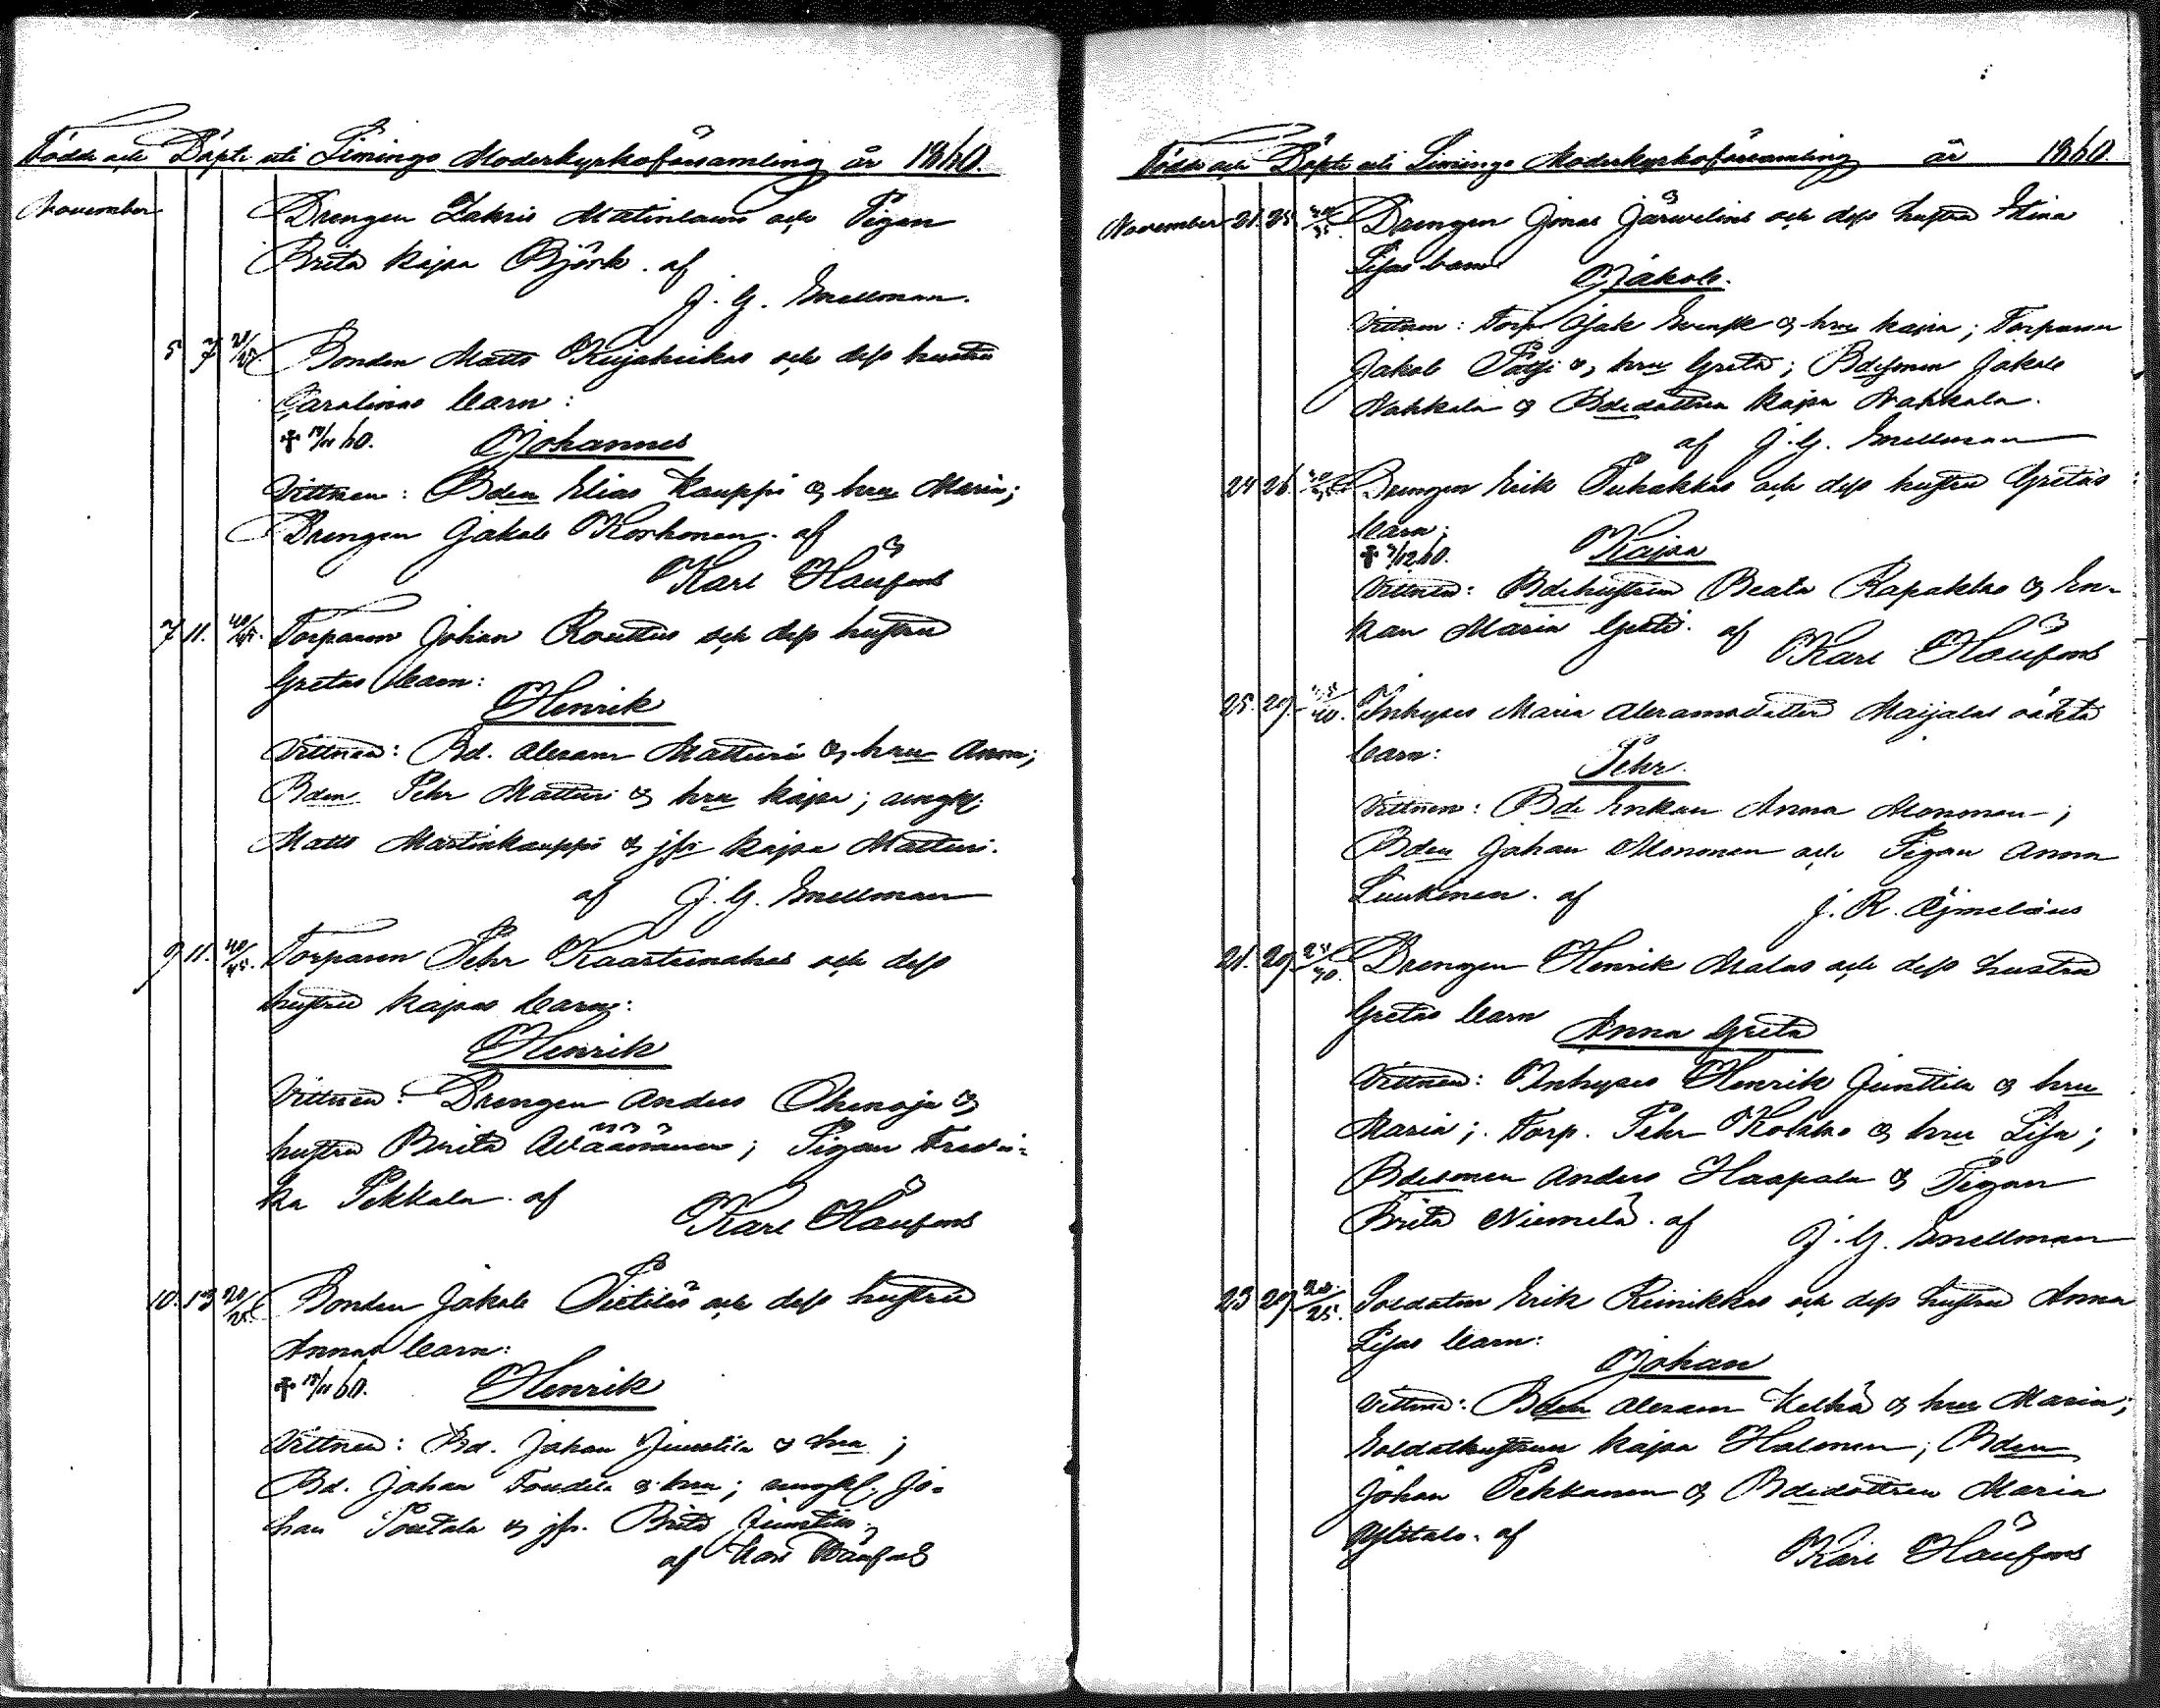 Födde och Döpte uti Limingo Moderkyrkoförsamling år 1860.
November Drengen Zakris Matinlauri och Pigan
Brita Kajsa Björk. af
J. G. Snellman.
5 7 Bonden Matts och dess hustru
Carolinas barn:
† 18/11 60. Johannes
Vittnen: Bden Elias Kauppi & hru Maria;
Drengen Jakob Korhonen. af
Karl
7 11. 40/45. Torparen Johan Routtus och dess hustru
Gretas barn:
Henrik
Vittnen: Bd. Abram Matturi & hru Anna;
Bden Pehr Matturi & hru Kajsa; ungk.
Matts Martinkauppi & jfr Kajsa Matturi.
af J. G. Snellman
9 11. 40/45. Torparen Pehr och dess
hustru Kajsas barn:
Henrik
Vittnen: Drengen Anders Ohenoja &
hustru Brita Väänänen; Pigan Fredri-
ka Pekkala. af
Karl
10. 13 20/25. Bonden Jakob Pietiläs och dess hustru
Annas barn:
† 18/11 60. Henrik
Vittnen: Bd. Johan Junttila & hru;
Bd. Johan & hru; ungk. Jo-
han & jfr. Brita Junttila.
af Karl
Födde och Döpte uti Limingo Moderkyrkoförsamling år 1860.
November 21. 25. Drengen Jonas Järvelins och dess hustru Stina
Lisas barn
Jakob.
Vittnen: Torp & hru Kajsa; Torparen
Jakob & hru Greta; Bdesonen Jakob
Nahkala & Bdedottren Kajsa Nahkala.
af J. G. Snellman
24 26. Drengen Erik Puhakkas och dess hustru Gretas
barn:
† 3/12 60. Kajsa
Vittnen: Bdehustrun Beata Rapakko & En-
kan Maria af
Karl
25. 29. Inhyses Maria Abramsdotter Maijalas oäkta
barn:
Pehr.
Vittnen: Bde Enkan Anna Mononen;
Bden Johan Mononen och Pigan Anna
Luukinen. af
J. R. Öjmelæus
21. 29. 25/40. Drengen Henrik Malas och dess hustru
Gretas barn
Anna Greta
Vittnen: Inhyses Henrik Junttila & hru
Maria; Torp. Pehr & hru Lisa;
Bdesonen Anders Haapala & Pigan
Brita Niemelä. af
J. G. Snellman
23 29. 20/25. Soldaten Erik Reinikkas och dess hustru Anna
Lisas barn:
Johan
Vittnen: Bden Abram & hru Maria;
Soldathustrun Kajsa Halonen; Bden
Johan Pekkanen & Bdedottren Maria
Ylitalo. af
Karl